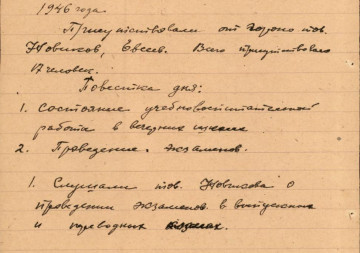 1946 года.
Присутствовали от гороно тов.
Новиков, Евсеев. Всего присутствовало
человек.
Повестка дня:
1. Состояние учебновоспитательной
работы в вечерних школах
2. Проведение экзаменов.
1. Слушали тов. Новикова о
проведении экзаменов в выпускных
и переводных